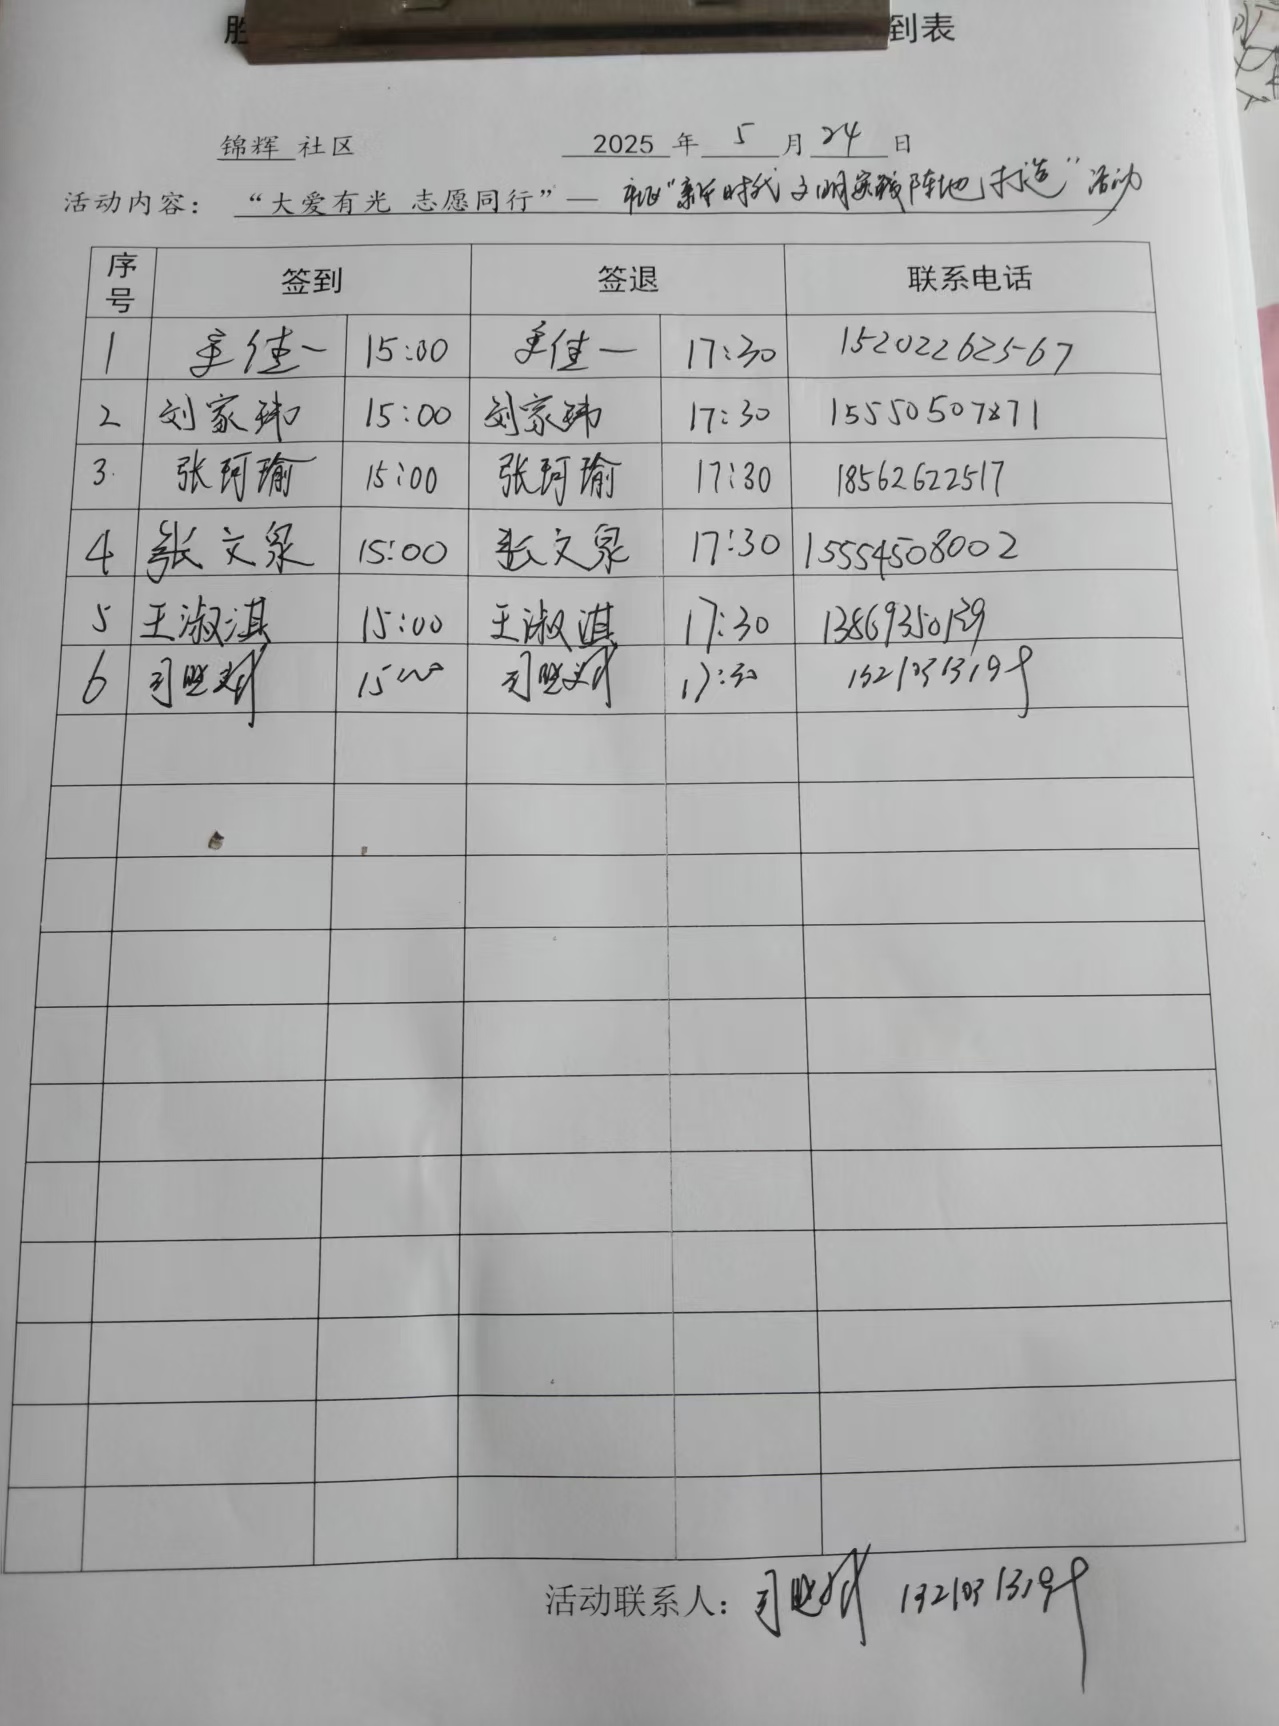 胜 到表
锦辉 社区 2025 年 5 月 24 日
活动内容： “大爱有光 志愿同行”— “新时代文明实践阵地打造”活动
序号 签到 签退 联系电话
1 佳一 15:00 佳一 17:30 15202262567
2 刘家玮 15:00 刘家玮 17:30 15550507871
3. 张珂瑜 15:00 张珂瑜 17:30 18562622517
4 张文泉 15:00 张文泉 17:30 15554508002
5 王淑淇 15:00 王淑淇 17:30 13869350139
6 司 15:00 司 17:30
活动联系人： 司